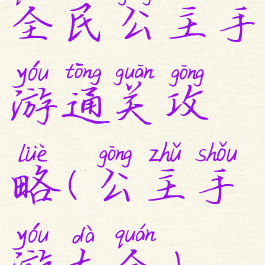 全民公主手
yóu tōng guān gōng
游通关攻
lüè gōng zhǔ shǒu
略(公主手
yóu dà quán
游大全)